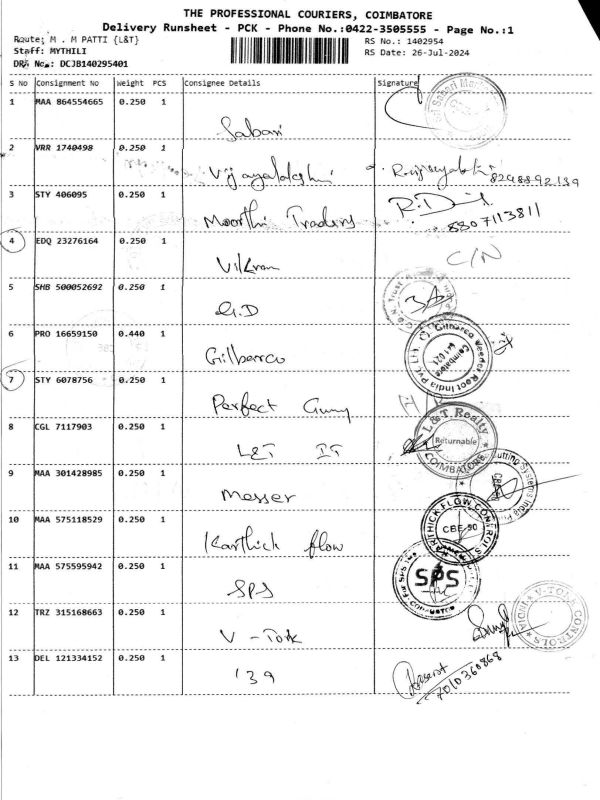 THE PROFESSIONAL COURIERS, COIMBATORE
Delivery Runsheet - PCK - Phone No.:0422-3505555 - Page No.:1
Route: M . M PATTI {L&T}
RS No.: 1402954
Staff: MYTHILI
RS Date: 26-Jul-2024
DRS No.: DCJB140295401
S No Consignment No Weight PCS Consignee Details Signature
1 MAA 864554665 0.250 1 Sabari
2 VRR 1740498 0.250 1 Vijayalakshmi 8248892139
3 STY 406095 0.250 1 Moorthi Traders 8807113811
4 EDQ 23276164 0.250 1 Vikram C/N
5 SHB 500052692 0.250 1 G.D
6 PRO 16659150 0.440 1 Gilbarco
Gilbarco Veeder Root India Pvt Ltd
Coimbatore
641 021
7 STY 6078756 0.250 1 Perfect Gummy
8 CGL 7117903 0.250 1 L&T IT
L&T. Realty
Returnable
COIMBATORE
9 MAA 301428985 0.250 1 Messer
Cutting Systems India
CBE
10 MAA 575118529 0.250 1 Karthick flow
KARTHICK FLOW CONTROLS
CBE-50
11 MAA 575595942 0.250 1 SPS
For SPS
SPS
12 TRZ 315168663 0.250 1 V-Tork
V-TORK CONTROLS
INDIA
13 DEL 121334152 0.250 1 139 7010360868